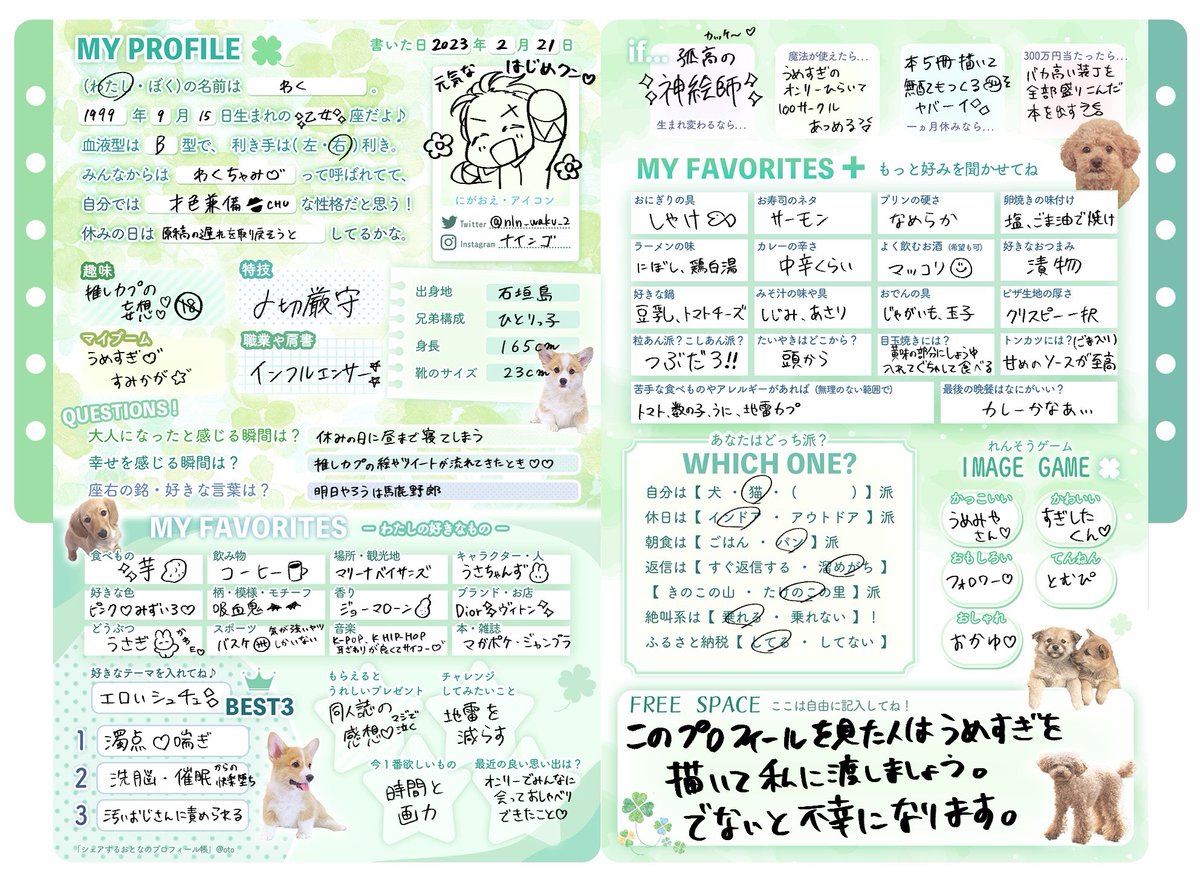 MY PROFILE
書いた日 2023 年 2 月 21 日
(わたし・ぼく)の名前は わく 。
1999 年 9 月 15 日生まれの 乙女 座だよ♪
血液型は B 型で、利き手は(左・右)利き。
みんなからは わくちゃみ♡ って呼ばれてて、
自分では 才色兼備 CHU な性格だと思う!
休みの日は 原稿の遅れを取り戻そうと してるかな。
元気な はじめクン♡
にがおえ・アイコン
Twitter @nln_waku_2
Instagram ナインゴ
趣味
推しカプの
妄想♡ 18
特技
〆切厳守
マイブーム
うめすぎ♡
すみかが☆
職業や肩書
インフルエンサー
出身地 石垣島
兄弟構成 ひとりっ子
身長 165cm
靴のサイズ 23cm
QUESTIONS!
大人になったと感じる瞬間は? 休みの日に昼まで寝てしまう
幸せを感じる瞬間は? 推しカプの絵やツイートが流れてきたとき♡♡
座右の銘・好きな言葉は? 明日やろうは馬鹿野郎
MY FAVORITES ーわたしの好きなものー
食べもの 芋
飲み物 コーヒー
場所・観光地 マリーナベイサンズ
キャラクター・人 うさちゃんず
好きな色 ピンク♡みずいろ♡
柄・模様・モチーフ 吸血鬼
香り ジョーマローン
ブランド・お店 Dior ヴィトン
どうぶつ うさぎ
スポーツ バスケ 気が強いヤツしかいない
音楽 K-POP、K HIP-HOP
耳ざわりが良くてサイコー♡
本・雑誌 マガポケ・ジャンプラ
好きなテーマを入れてね♪
エロいシュチュ
BEST3
1 濁点♡喘ぎ
2 洗脳・催眠からの快楽堕ち
3 汚いおじさんに責められる
もらえると
うれしいプレゼント
同人誌の
感想♡マジで泣く
チャレンジ
してみたいこと
地雷を
減らす
今1番欲しいもの
時間と
画力
最近の良い思い出は?
オンリーでみんなに
会っておしゃべり
できたこと♡
「シェアするおとなのプロフィール帳」@oto
if...
カッケ〜♡
孤高の
神絵師
生まれ変わるなら...
魔法が使えたら...
うめすぎの
オンリーひらいて
100サークル
あつめる
本5冊描いて
ヤバーイ
一ヵ月休みなら...
300万円当たったら...
バカ高い装丁を
全部盛りこんだ
本を出す
MY FAVORITES + もっと好みを聞かせてね
おにぎりの具 しゃけ
お寿司のネタ サーモン
プリンの硬さ なめらか
卵焼きの味付け 塩、ごま油で焼け
ラーメンの味 にぼし、鶏白湯
カレーの辛さ 中辛くらい
よく飲むお酒(希望も可) マッコリ
好きなおつまみ 漬物
好きな鍋 豆乳、トマトチーズ
みそ汁の味や具 しじみ、あさり
おでんの具 じゃがいも、玉子
ピザ生地の厚さ クリスピー一択
粒あん派?こしあん派? つぶだろ!!
たいやきはどこから? 頭から
目玉焼きには? 黄味の部分にしょうゆ
入れてぐちゃして食べる
トンカツには?(ごま入り) 甘めのソースが至高
苦手な食べものやアレルギーがあれば(無理のない範囲で)
トマト、数の子、うに、地雷カプ
最後の晩餐はなにがいい?
カレーかなぁ…
あなたはどっち派?
WHICH ONE?
自分は【 犬 ・ 猫 ・ ( ) 】派
休日は【 インドア ・ アウトドア 】派
朝食は【 ごはん ・ パン 】派
返信は【 すぐ返信する ・ 溜めがち 】
【 きのこの山 ・ たけのこの里 】派
絶叫系は【 乗れる ・ 乗れない 】!
ふるさと納税【 してる ・ してない 】
れんそうゲーム
IMAGE GAME
かっこいい
うめみや
さん♡
かわいい
すぎした
くん♡
おもしろい
フォロワー♡
てんねん
とむぴ
おしゃれ
おかゆ♡
FREE SPACE ここは自由に記入してね!
このプロフィールを見た人はうめすぎを
描いて私に渡しましょう。
でないと不幸になります。